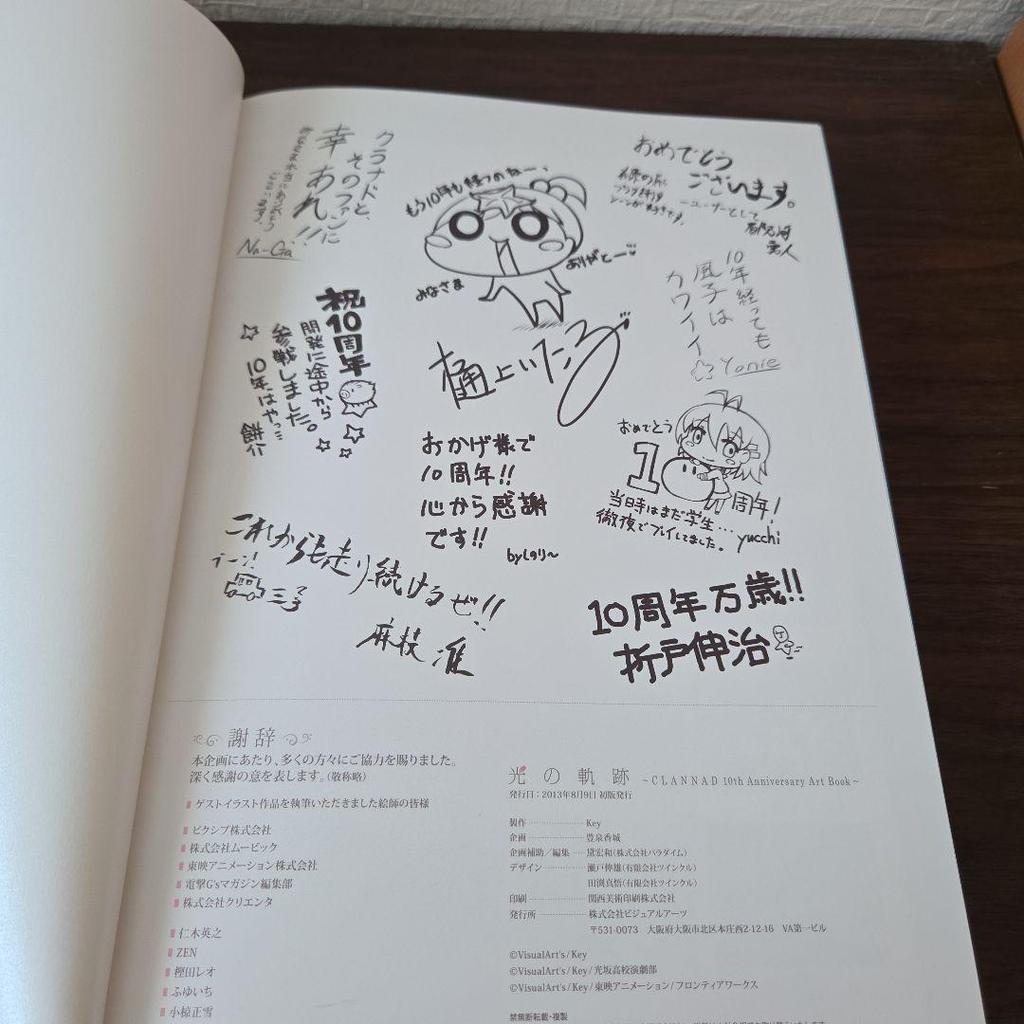 クラナドと、
そのファンに
幸あれ!!
Na-Ga
もう10年も経つのねー、
みなさま
ありがとー
樋上いたる
おめでとう
ございます。
ーユーザーとして
10年経っても
風子は
カワイイ
Yonie
祝10周年
開発に途中から
参戦しました。
10年はやっ…
餅介
おかげ様で
10周年!!
心から感謝
です!!
byしのり〜
おめでとう
10
周年!
当日時はまだ学生…
徹夜でプレイしてました。
yucchi
これからも走り続けるぜ!!
麻枝 准
10周年万歳!!
折戸伸治
謝辞
本企画にあたり、多くの方々にご協力を賜りました。
深く感謝の意を表します。(敬称略)
■ ゲストイラスト作品を執筆いただきました絵師の皆様
■ ピクシブ株式会社
■ 株式会社ムービック
■ 東映アニメーション株式会社
■ 電撃G'sマガジン編集部
■ 株式会社クリエンタ
■ 仁木英之
■ ZEN
■ 樫田レオ
■ ふゆいち
■ 小椋正雪
光の軌跡 ～CLANNAD 10th Anniversary Art Book～
発行日：2013年8月9日 初版発行
製作 Key
企画 豊泉香城
企画補助／編集 黛宏和(株式会社パラダイム)
デザイン 瀬戸伸雄(有限会社ツインクル)
田渕真悟(有限会社ツインクル)
印刷 関西美術印刷株式会社
発行所 株式会社ビジュアルアーツ
〒531-0073 大阪府大阪市北区本庄西2-12-16 VA第一ビル
©VisualArt's/Key
©VisualArt's/Key/光坂高校演劇部
©VisualArt's/Key/東映アニメーション/フロンティアワークス
禁無断転載・複製